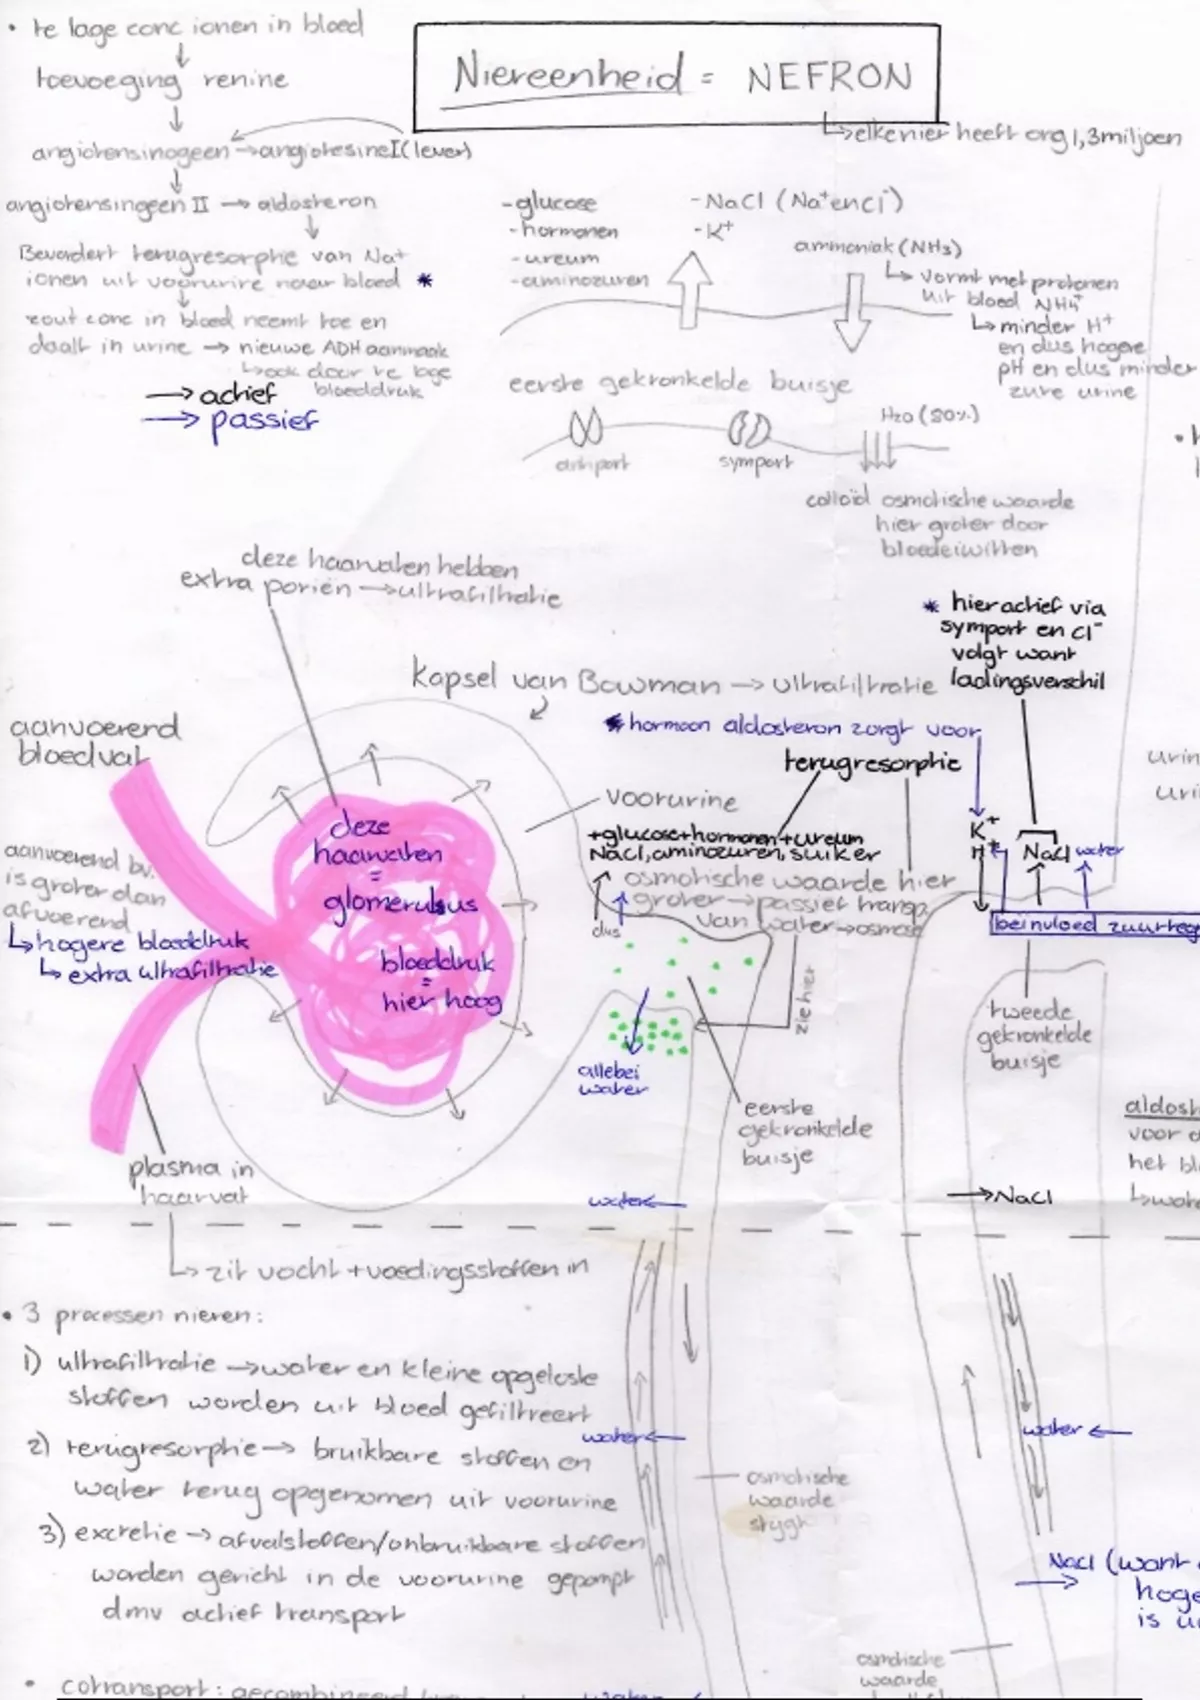 • te lage conc ionen in bloed
↓
toevoeging renine
↓
angiotensinogeen → angiotesine I (lever)
↓
angiotensingeen II → aldosteron
↓
Bevordert terugresorptie van Na+
ionen uit voorurine naar bloed *
↓
zout conc in bloed neemt toe en
daalt in urine → nieuwe ADH aanmaak
↳ ook door te lage
bloeddruk
→ actief
→ passief
Niereenheid = NEFRON
↳ elke nier heeft ong 1,3 miljoen
- glucose
- hormonen
- ureum
- aminozuren
- NaCl (Na+ en Cl-)
- K+
ammoniak (NH3)
↳ vormt met protonen
uit bloed NH4+
↳ minder H+
en dus hogere
pH en dus minder
zure urine
eerste gekronkelde buisje
antiport
symport
H2O (80%)
colloïd osmotische waarde
hier groter door
bloedeiwitten
deze haarvaten hebben
extra poriën → ultrafiltratie
* hier actief via
symport en Cl-
volgt want
ladingsverschil
kapsel van Bowman → ultrafiltratie
* hormoon aldosteron zorgt voor
terugresorptie
aanvoerend
bloedvat
voorurine
deze
haarvaten
=
glomerulus
bloeddruk
=
hier hoog
+glucose+hormonen+ureum
NaCl, aminozuren, suiker
osmotische waarde hier
groter → passief transp.
van water → osmose
dus
K+
H+
NaCl
water
beinvloed zuurteg
aanvoerend bv.
is groter dan
afvoerend
↳ hogere bloeddruk
↳ extra ultrafiltratie
zie hier
allebei
water
eerste
gekronkelde
buisje
tweede
gekronkelde
buisje
urin
uri
aldost
voor d
het bl
↳ wat
plasma in
haarvat
water ←
→ NaCl
↳ zit vocht + voedingsstoffen in
• 3 processen nieren:
1) ultrafiltratie → water en kleine opgeloste
stoffen worden uit bloed gefiltreert
2) terugresorptie → bruikbare stoffen en
water terug opgenomen uit voorurine
3) excretie → afvalstoffen/onbruikbare stoffen
worden gericht in de voorurine gepompt
dmv actief transport
water ←
osmotische
waarde
stijgt
water ←
NaCl (want
→ hoge
is u
osmotische
waarde
• cotransport: gecombineerd
water ←